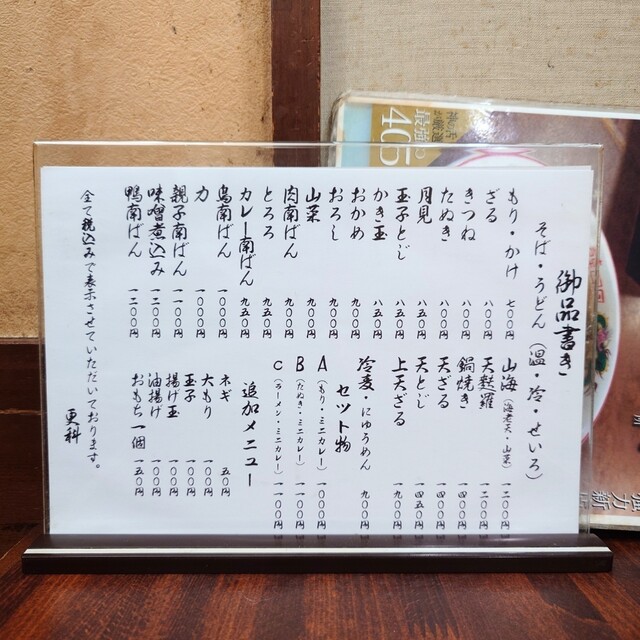 御品書き
そば・うどん(温・冷・せいろ)
もり・かけ 七〇〇円
ざる 八〇〇円
きつね 八〇〇円
たぬき 八〇〇円
月見 八五〇円
玉子とじ 八五〇円
かき玉 八五〇円
おかめ 九〇〇円
おろし 九〇〇円
山菜 九〇〇円
肉南ばん 九〇〇円
とろろ 九五〇円
カレー南ばん 九五〇円
鳥南ばん 一〇〇〇円
力 一〇〇〇円
親子南ばん 一一〇〇円
味噌煮込み 一二〇〇円
鴨南ばん 一二〇〇円
山海(海老天・山菜) 一二〇〇円
天麩羅 一二〇〇円
鍋焼き 一四〇〇円
天ざる 一四〇〇円
天とじ 一四五〇円
上天ざる 一九〇〇円
冷麦・にゅうめん 九〇〇円
セット物
A(もり・ミニカレー) 一〇〇〇円
B(たぬき・ミニカレー) 一一〇〇円
C(ラーメン・ミニカレー) 一一〇〇円
追加メニュー
ネギ 五〇円
大もり 一〇〇円
玉子 一〇〇円
揚げ玉 一〇〇円
油揚げ 一〇〇円
おもち一個 一五〇円
全て税込みで表示させていただいております。
更科
405